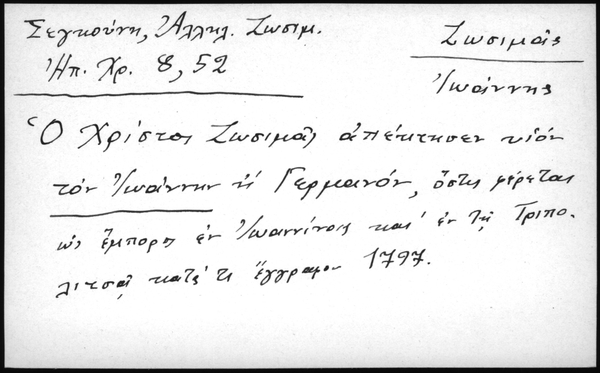 Σεγκούνη, Ἀλληλ. Ζωσιμ.
Ἠπ. Χρ. 8, 52
Ζωσιμᾶς
Ἰωάννης
Ὁ Χρίστος Ζωσιμᾶς ἀπέκτησεν υἱόν
τόν Ἰωάννην ἤ Γερμανόν, ὅστις φέρεται
ὡς ἔμπορος ἐν Ἰωαννίνοις καί ἐν τῇ Τριπο-
λιτσᾷ κατά τι ἔγγραφον 1797.